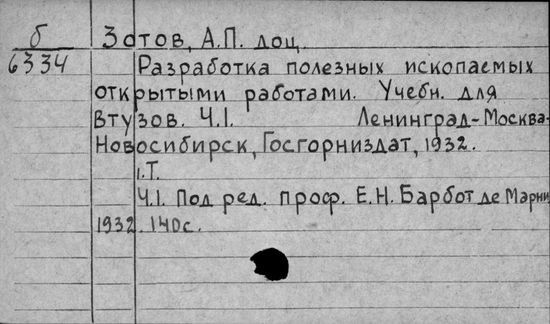 б Зотов, А.П. доц.
6334 Разработка полезных ископаемых
открытыми работами. Учебн. для
втузов. Ч.I. Ленинград-Москва-
Новосибирск, Госгорниздат, 1932.
1.Т.
Ч.I. Под ред. проф. Е.Н. Барбот де Марни
1932. 140с.